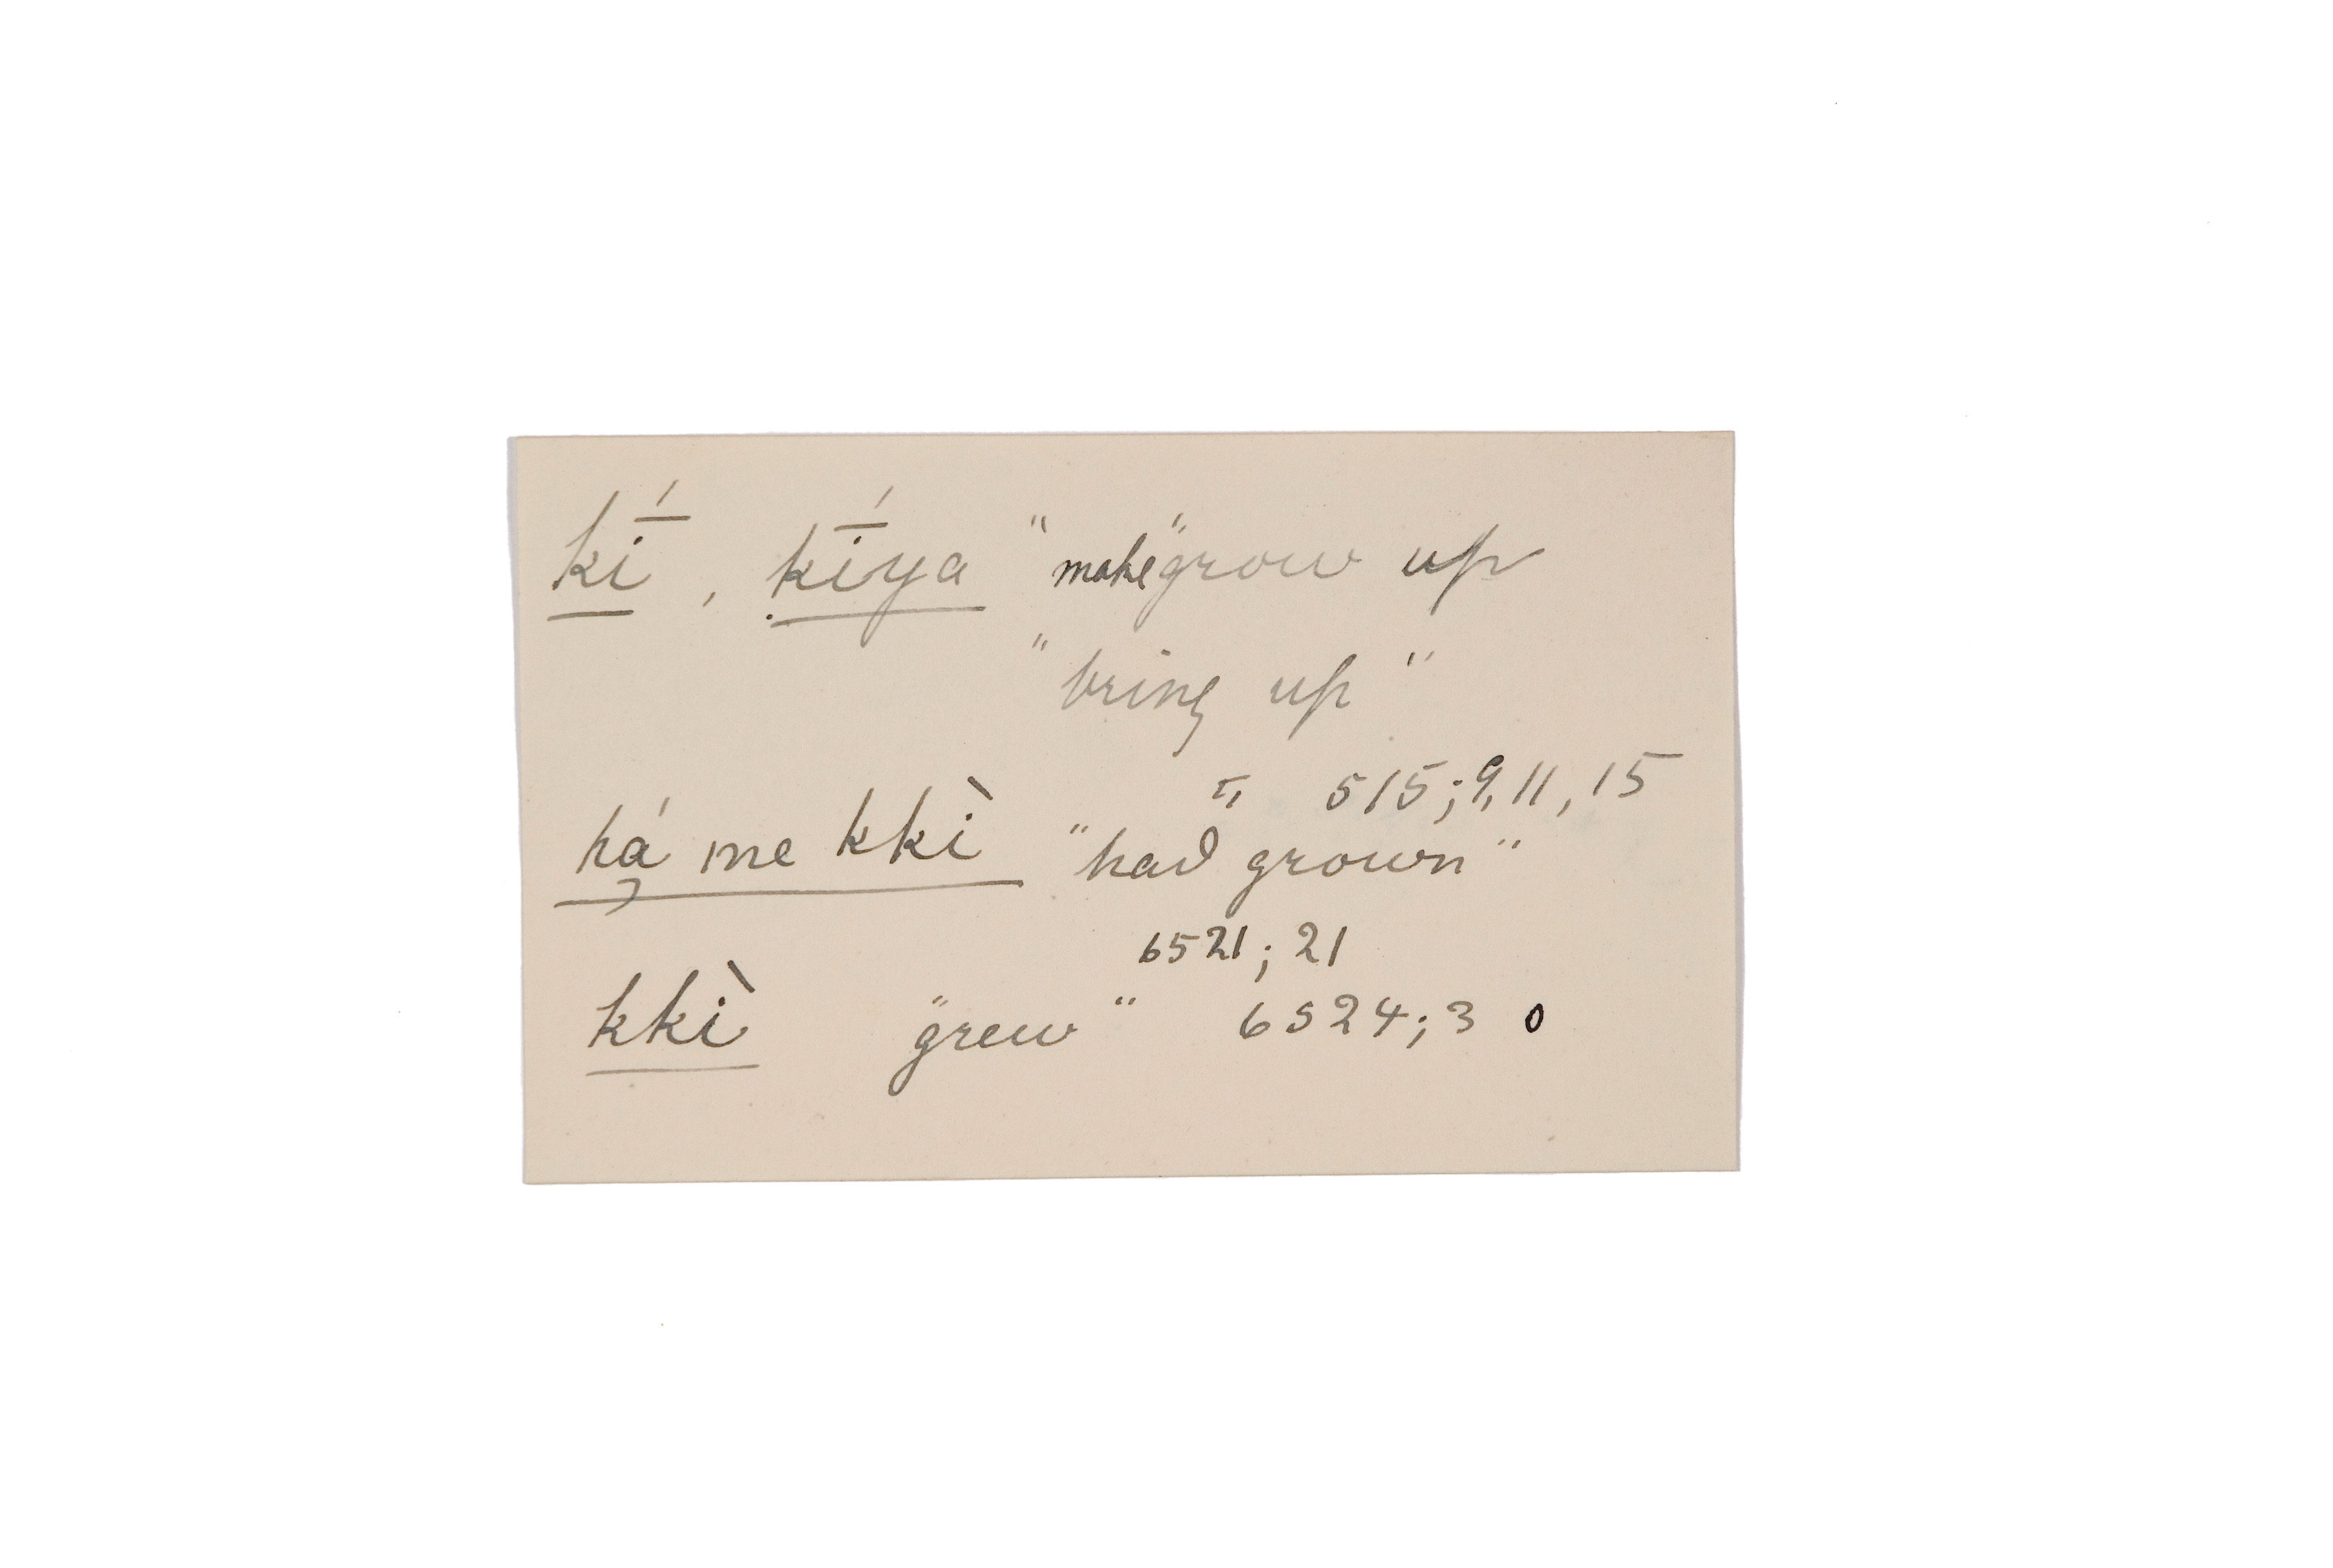 kī́, kī́ya "make" grow up
"bring up"
II 515; 9, 11, 15
hą́ me kkì "had grown"
6521; 21
kkì "grew" 6524; 3 0